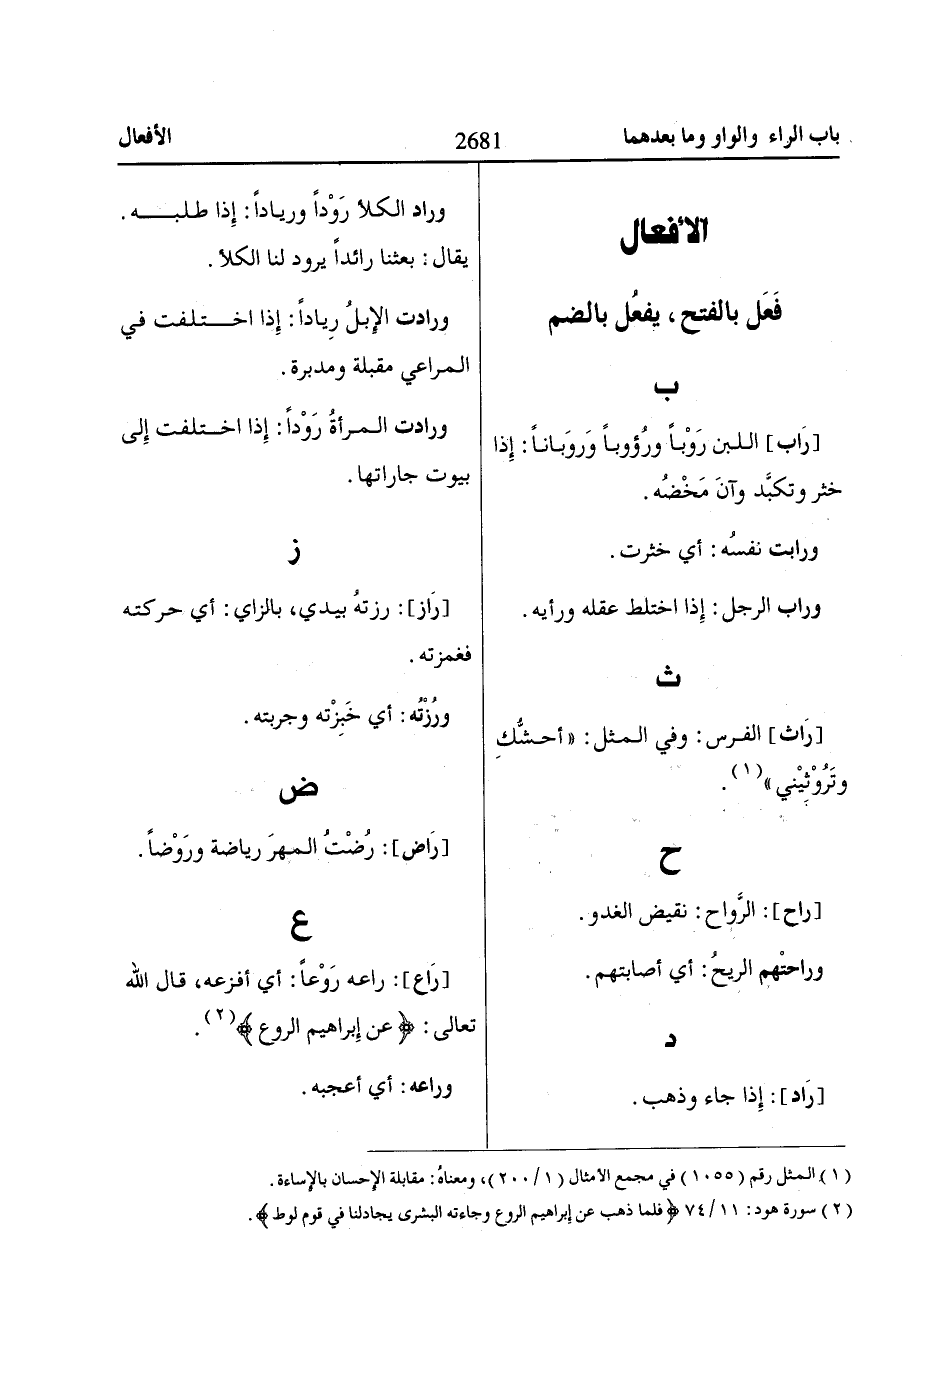 باب الراء والواو وما بعدهما
2681
الأفعال
الأفعال
فَعَل بالفتح، يفعُل بالضم
ب
[رَاب] اللبن رَوْباً ورُؤوباً وَرَوَباناً: إِذا
خثر وتكبَّد وآنَ مَخْضُه.
ورابت نفسُه: أي خثرت.
وراب الرجل: إِذا اختلط عقله ورأيه.
ث
[رَاث] الفرس: وفي المثل: «أحشُّكِ
وتَرُوْثِيْني»(١).
ح
[راح]: الرَّواح: نقيض الغدو.
وراحتْهم الريحُ: أي أصابتهم.
د
[رَاد]: إِذا جاء وذهب.
وراد الكلأ رَوْداً ورياداً: إِذا طلبـــه.
يقال: بعثنا رائداً يرود لنا الكلأ.
ورادت الإبلُ رِياداً: إِذا اختـلفت في
المراعي مقبلة ومدبرة.
ورادت المرأةُ رَوْداً: إِذا اختـلفت إِلى
بيوت جاراتها.
ز
[رَاز]: رزتهُ بيدي، بالزاي: أي حركته
فغمزته.
ورُزْتُه: أي خَبِزْته وجربته.
ض
[رَاض]: رُضْتُ المهرَ رياضة ورَوْضاً.
ع
[رَاع]: راعه رَوْعاً: أي أفزعه، قال الله
تعالى: ﴿عن إِبراهيم الروع﴾(٢).
وراعه: أي أعجبه.
(١) المثل رقم (١٠٥٥) في مجمع الأمثال (٢٠٠/١)، ومعناهُ: مقابلة الإحسان بالإساءة.
(٢) سورة هود: ٧٤/١١ ﴿فلما ذهب عن إِبراهيم الروع وجاءته البشرى يجادلنا في قوم لوط﴾.